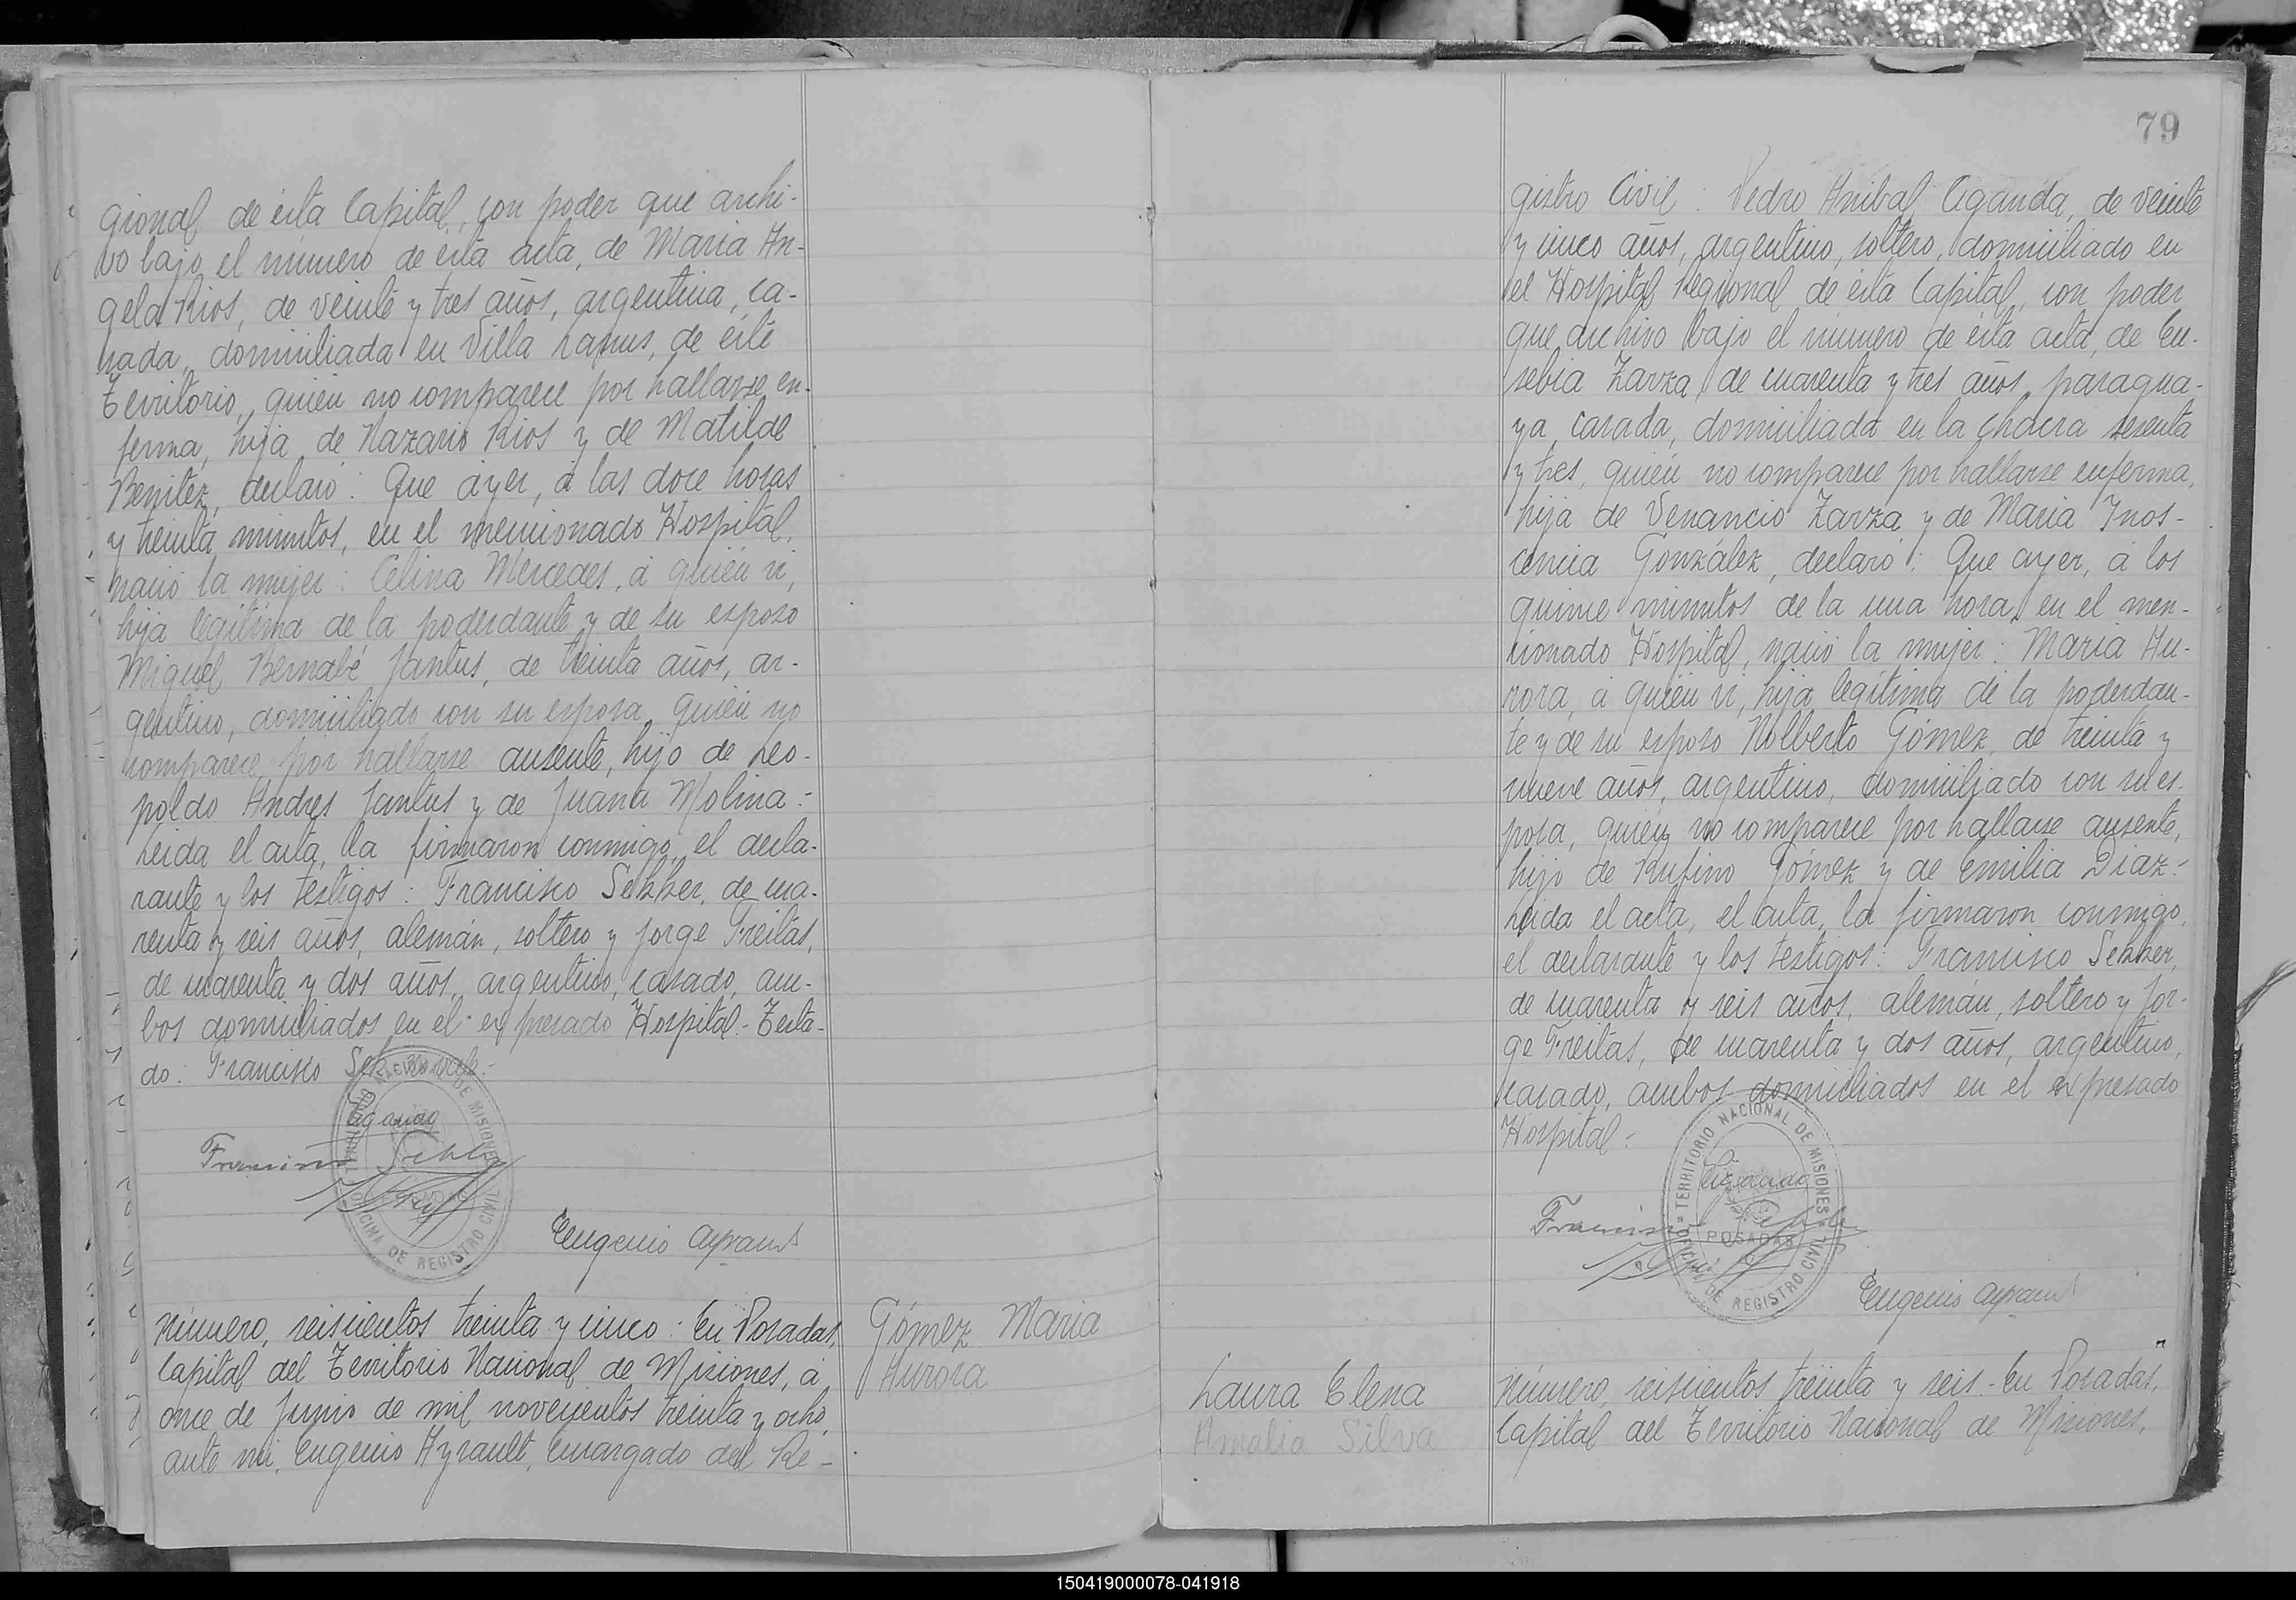 gional de ésta Capital, con poder que archi-
vo bajo el número de ésta acta, de Maria An-
gela Rios, de veinte y tres años, argentina, ca-
sada, domiciliada en Villa Lanus, de éste
Territorio, quién no comparece por hallarse en-
ferma, hija de Nazario Rios y de Matilde
Benitez, declaró: Que ayer, á las doce horas
y treinta minutos, en el mencionado Hospital,
nació la mujer: Celina Mercedes, á quién vi,
hija legitima de la poderdante y de su esposo
Miguel Bernabé Jantus, de treinta años, ar-
gentino, domiciliado con su esposa, quién no
comparece por hallarse ausente, hijo de Leo-
poldo Andres Jantus y de Juana Molina.-
Leida el acta, la firmaron conmigo, el decla-
rante y los testigos: Francisco Sekker, de cua-
renta y seis años, alemán, soltero y Jorge Freitas,
de cuarenta y dos años, argentino, casado, am-
bos domiciliados en el expresado Hospital.- Testa-
do: Francisco
TERRITORIO NACIONAL DE MISIONES
OFICINA DE REGISTRO CIVIL
POSADAS
Eugenio Ayrault
Número, seiscientos treinta y cinco: En Posadas,
Capital del Territorio Nacional de Misiones, á
once de Junio de mil novecientos treinta y ocho,
ante mi, Eugenio Ayrault, encargado del Re-
Gómez Maria
Aurora
79
gistro Civil: Pedro Anibal Ciganda, de veinte
y cinco años, argentino, soltero, domiciliado en
el Hospital Regional de ésta Capital, con poder
que archivo bajo el número de ésta acta, de Eu-
sebia Zarza, de cuarenta y tres años, paragua-
ya, casada, domiciliada en la chacra sesenta
y tres, quién no comparece por hallarse enferma,
hija de Venancio Zarza y de Maria Inos-
cencia González, declaró: Que ayer, á los
quince minutos de la una hora, en el men-
cionado Hospital, nació la mujer: Maria Au-
rora, á quién vi, hija legitima de la poderdan-
te y de su esposo Nolberto Gómez, de treinta y
nueve años, argentino, domiciliado con su es-
posa, quién no comparece por hallarse ausente,
hijo de Rufino Gómez y de Emilia Diaz.-
Leida el acta, el acta, la firmaron conmigo,
el declarante y los testigos: Francisco Sekker,
de cuarenta y seis años, alemán, soltero y Jor-
ge Freitas, de cuarenta y dos años, argentino,
casado, ambos domiciliados en el expresado
Hospital.-
TERRITORIO NACIONAL DE MISIONES
POSADAS
OFICINA DE REGISTRO CIVIL
Eugenio Ayrault
Laura Elena
Amalia Silva
Número, seiscientos treinta y seis.- En Posadas,
Capital del Territorio Nacional de Misiones,
150419000078-041918